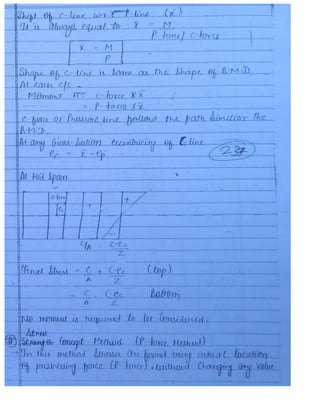 Shift of c-line w.r.t P-line (x̄)
It is always equal to x̄ = M
P-force/c-force
x̄ = M
P
Shape of c-line is same as the shape of B.M.D.
At each c/s -
Moment = c-force X x̄
= P-force X x̄
c-force or Pressure line follows the path similar the
B.M.D.
At any cross-section eccentricity of c-line
ec = x̄ - ep
237
At Mid Span
c-force
ec
+
+
-
C/A
C·ec
Z
Final Stress - C + C·ec (top)
A Z
= C - C·ec Bottom
A Z
No moment is required to be considered.
Stress
Strength Concept Method (P-force Method)
In this method stresses are found using actual location
of prestressing force (P-force), without changing any value